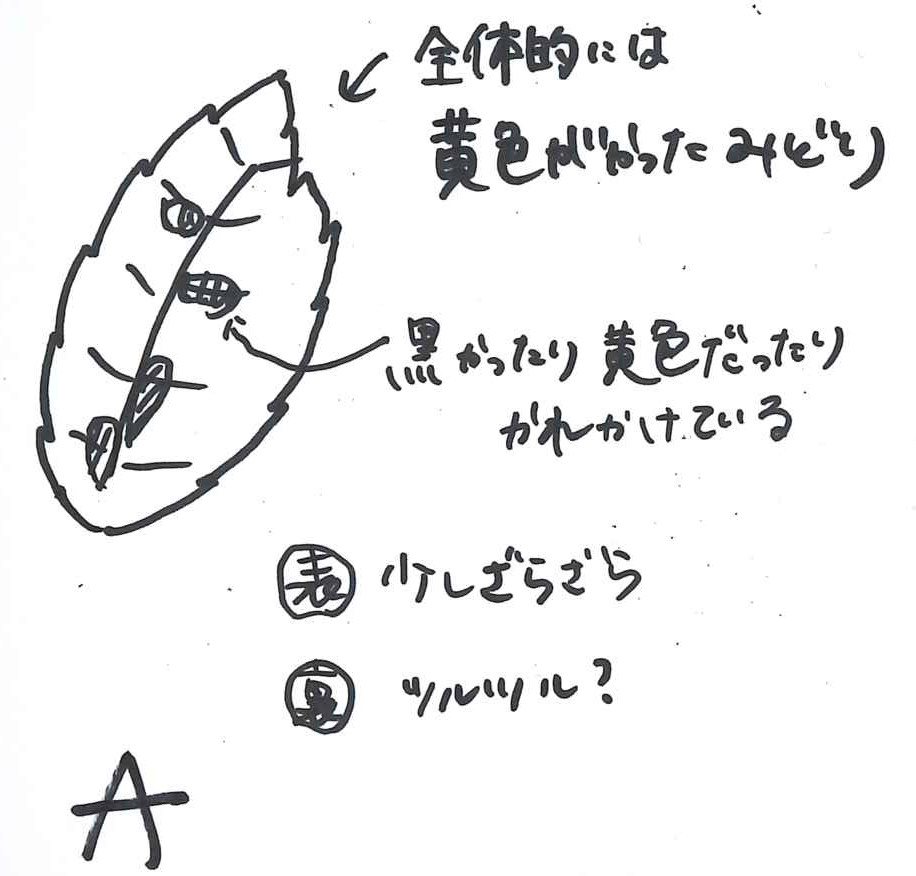 全体的には
黄色がかったみどり
黒かったり黄色だったり
かれかけている
表 少しざらざら
裏 ツルツル?
A